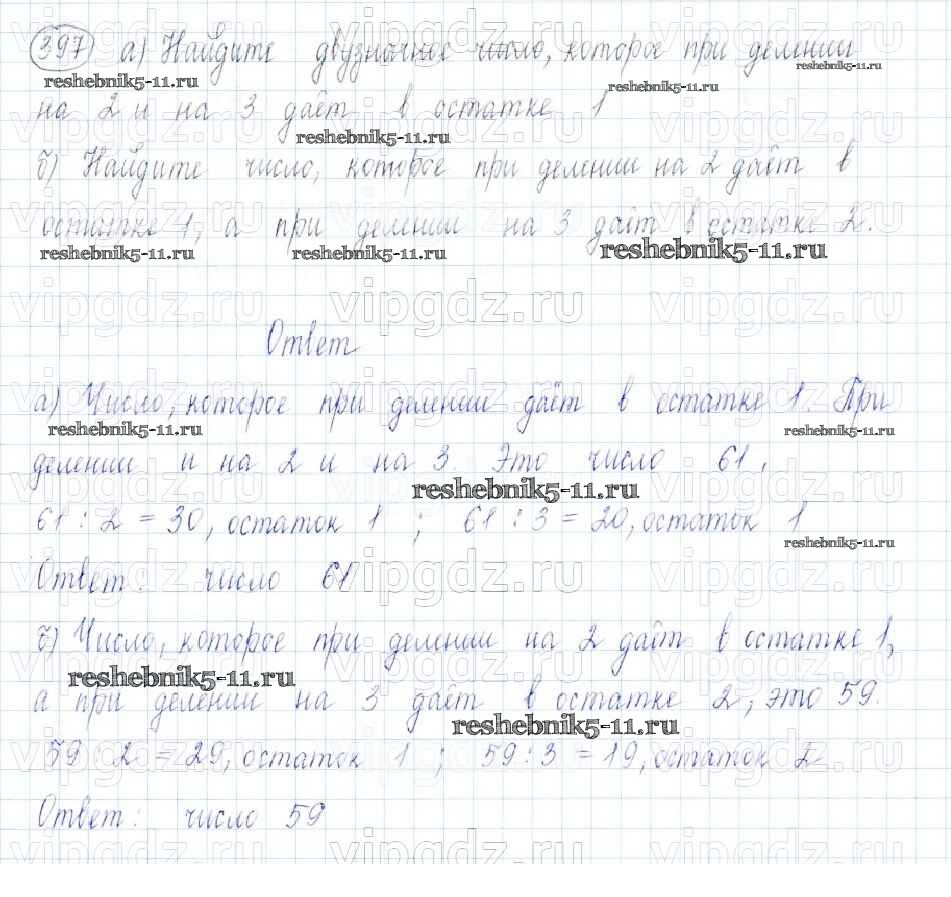 397 а) Найдите двузначное число, которое при делении
на 2 и на 3 даёт в остатке 1
б) Найдите число, которое при делении на 2 даёт в
остатке 1, а при делении на 3 даёт в остатке 2.
Ответ
а) Число, которое при делении даёт в остатке 1. При
делении и на 2 и на 3. Это число 61,
61 : 2 = 30, остаток 1 ; 61 : 3 = 20, остаток 1
Ответ: число 61
б) Число, которое при делении на 2 даёт в остатке 1,
а при делении на 3 даёт в остатке 2, это 59.
59 2 = 29, остаток 1 ; 59 : 3 = 19, остаток 2
Ответ: число 59
vipgdz.ru
reshebnik5-11.ru